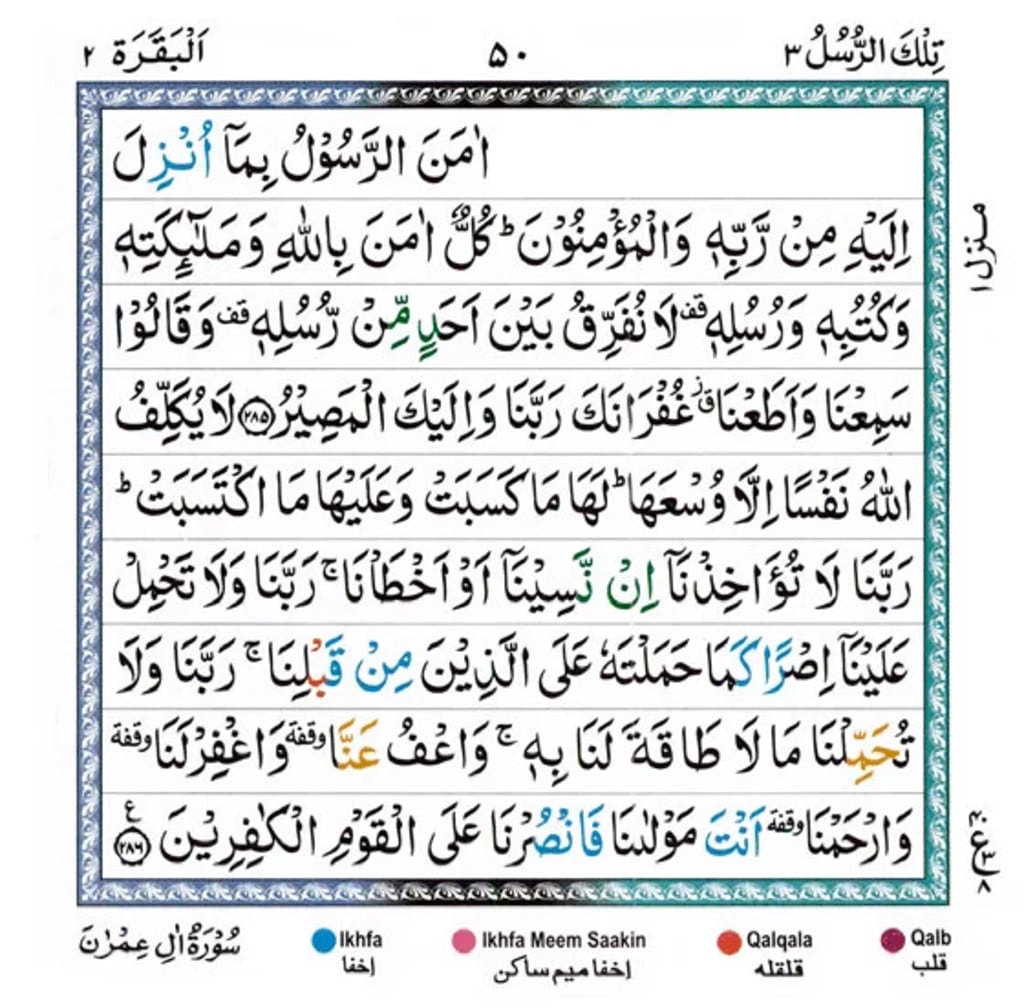 تِلْكَ الرُّسُلُ ٣
٥٠
اَلْبَقَرَة ٢
اٰمَنَ الرَّسُوْلُ بِمَآ اُنْزِلَ
اِلَيْهِ مِنْ رَّبِّهٖ وَالْمُؤْمِنُوْنَ ؕ كُلٌّ اٰمَنَ بِاللّٰهِ وَمَلٰٓئِكَتِهٖ
وَكُتُبِهٖ وَرُسُلِهٖ قف لَا نُفَرِّقُ بَيْنَ اَحَدٍ مِّنْ رُّسُلِهٖ قف وَقَالُوْا
سَمِعْنَا وَاَطَعْنَا ق ز غُفْرَانَكَ رَبَّنَا وَاِلَيْكَ الْمَصِيْرُ ٢٨٥ لَا يُكَلِّفُ
اللّٰهُ نَفْسًا اِلَّا وُسْعَهَا ؕ لَهَا مَا كَسَبَتْ وَعَلَيْهَا مَا اكْتَسَبَتْ ؕ
رَبَّنَا لَا تُؤَاخِذْنَآ اِنْ نَّسِيْنَآ اَوْ اَخْطَاْنَا ۚ رَبَّنَا وَلَا تَحْمِلْ
عَلَيْنَآ اِصْرًا كَمَا حَمَلْتَهٗ عَلَى الَّذِيْنَ مِنْ قَبْلِنَا ۚ رَبَّنَا وَلَا
تُحَمِّلْنَا مَا لَا طَاقَةَ لَنَا بِهٖ ۚ وَاعْفُ عَنَّا وقفة وَاغْفِرْ لَنَا وقفة
وَارْحَمْنَا وقفة اَنْتَ مَوْلٰىنَا فَانْصُرْنَا عَلَى الْقَوْمِ الْكٰفِرِيْنَ ع ٢٨٦
منزل ١
ع ٣ ٨
سُوْرَةُ اٰلِ عِمْرٰنَ
Ikhfa
إخفا
Ikhfa Meem Saakin
إخفا ميم ساكن
Qalqala
قلقله
Qalb
قلب